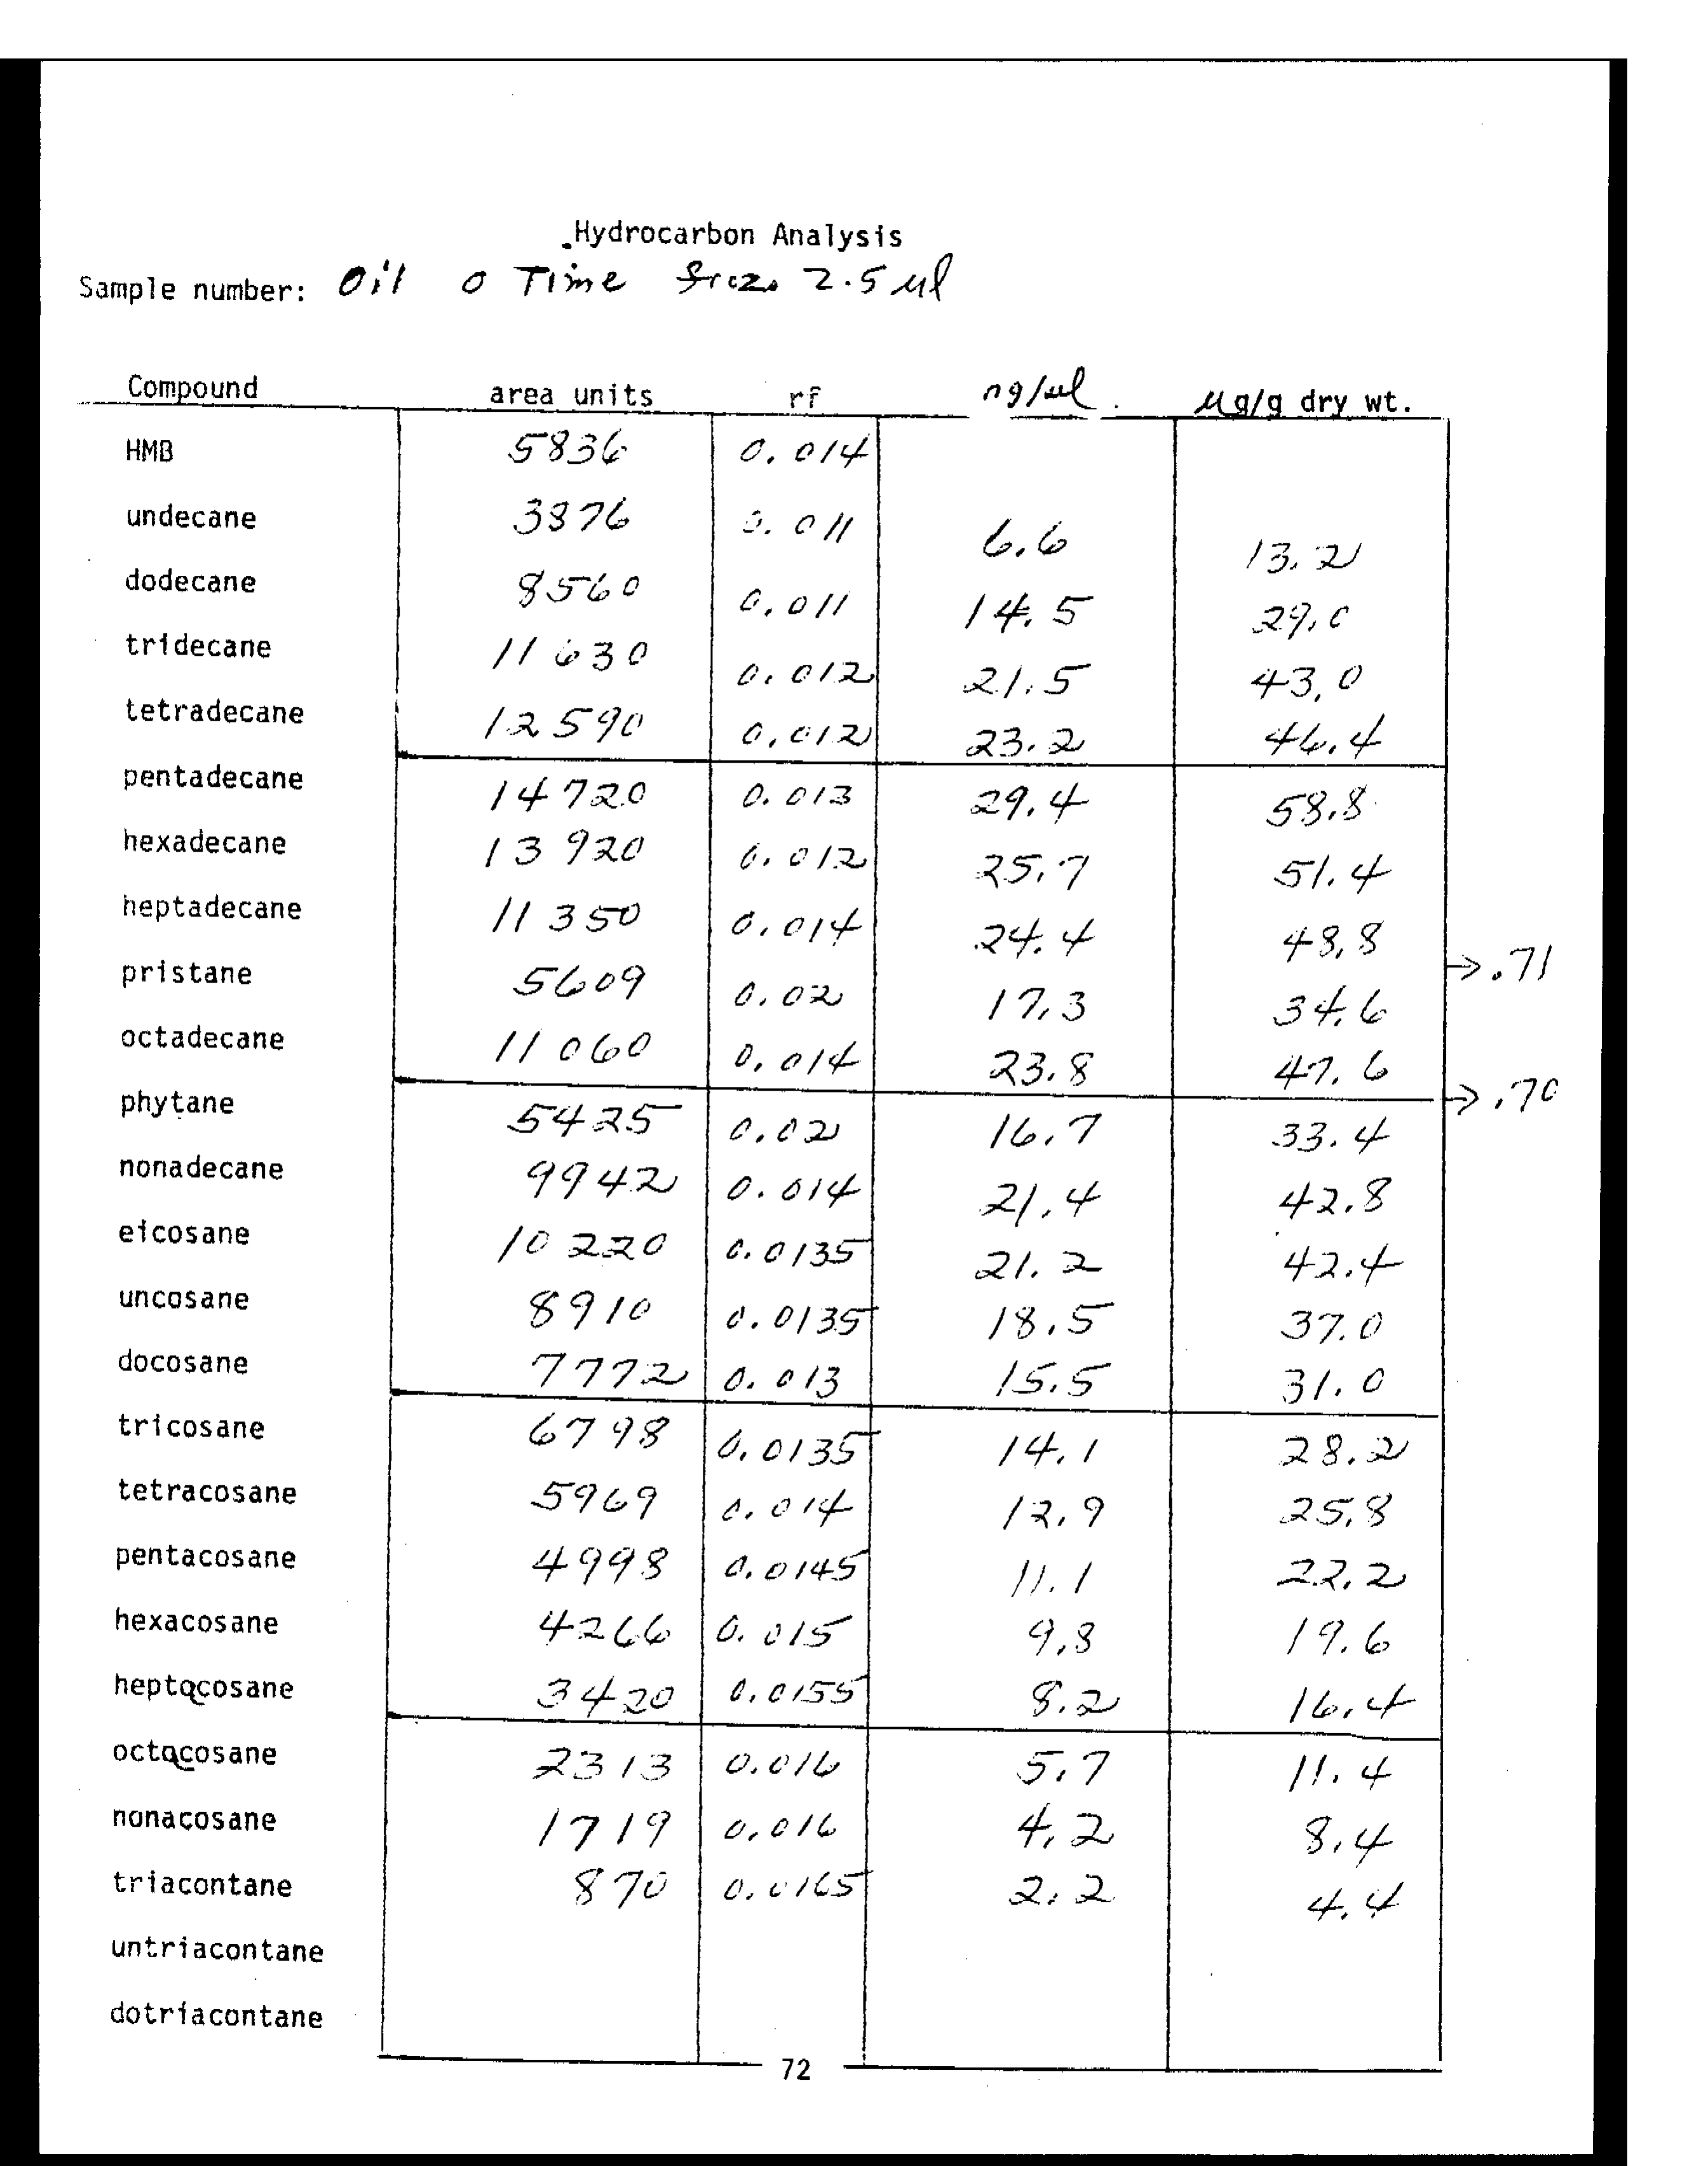 Hydrocarbon Analysis
Sample number: Oil 0 Time 2.5 µl
Compound area units rf ng/µl µg/g dry wt.
HMB 5836 0.014
undecane 3876 0.011 6.6 13.2
dodecane 8560 0.011 14.5 29.0
tridecane 11630 0.012 21.5 43.0
tetradecane 12590 0.012 23.2 46.4
pentadecane 14720 0.013 29.4 58.8
hexadecane 13920 0.012 25.7 51.4
heptadecane 11350 0.014 24.4 48.8
→ .71
pristane 5609 0.02 17.3 34.6
octadecane 11060 0.014 23.8 47.6
→ .70
phytane 5425 0.02 16.7 33.4
nonadecane 9942 0.014 21.4 42.8
eicosane 10220 0.0135 21.2 42.4
uncosane 8910 0.0135 18.5 37.0
docosane 7772 0.013 15.5 31.0
tricosane 6798 0.0135 14.1 28.2
tetracosane 5969 0.014 12.9 25.8
pentacosane 4998 0.0145 11.1 22.2
hexacosane 4266 0.015 9.8 19.6
heptacosane 3420 0.0155 8.2 16.4
octacosane 2313 0.016 5.7 11.4
nonacosane 1719 0.016 4.2 8.4
triacontane 870 0.0165 2.2 4.4
untriacontane
dotriacontane
72